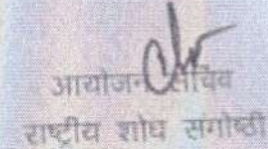 आयोजन सचिव
राष्ट्रीय शोध संगोष्ठी